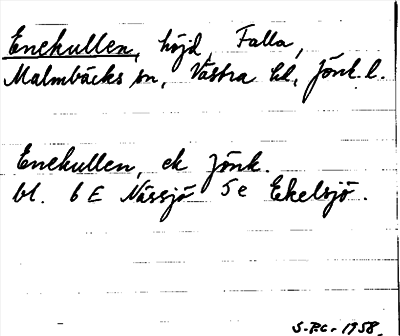 Enekullen, höjd, Falla,
Malmbäcks sn, Västra hd, Jönk. l.
Enekullen, ek Jönk.
bl. 6 E Nässjö 5 e Ekelsjö.
S. P.C. 1958.